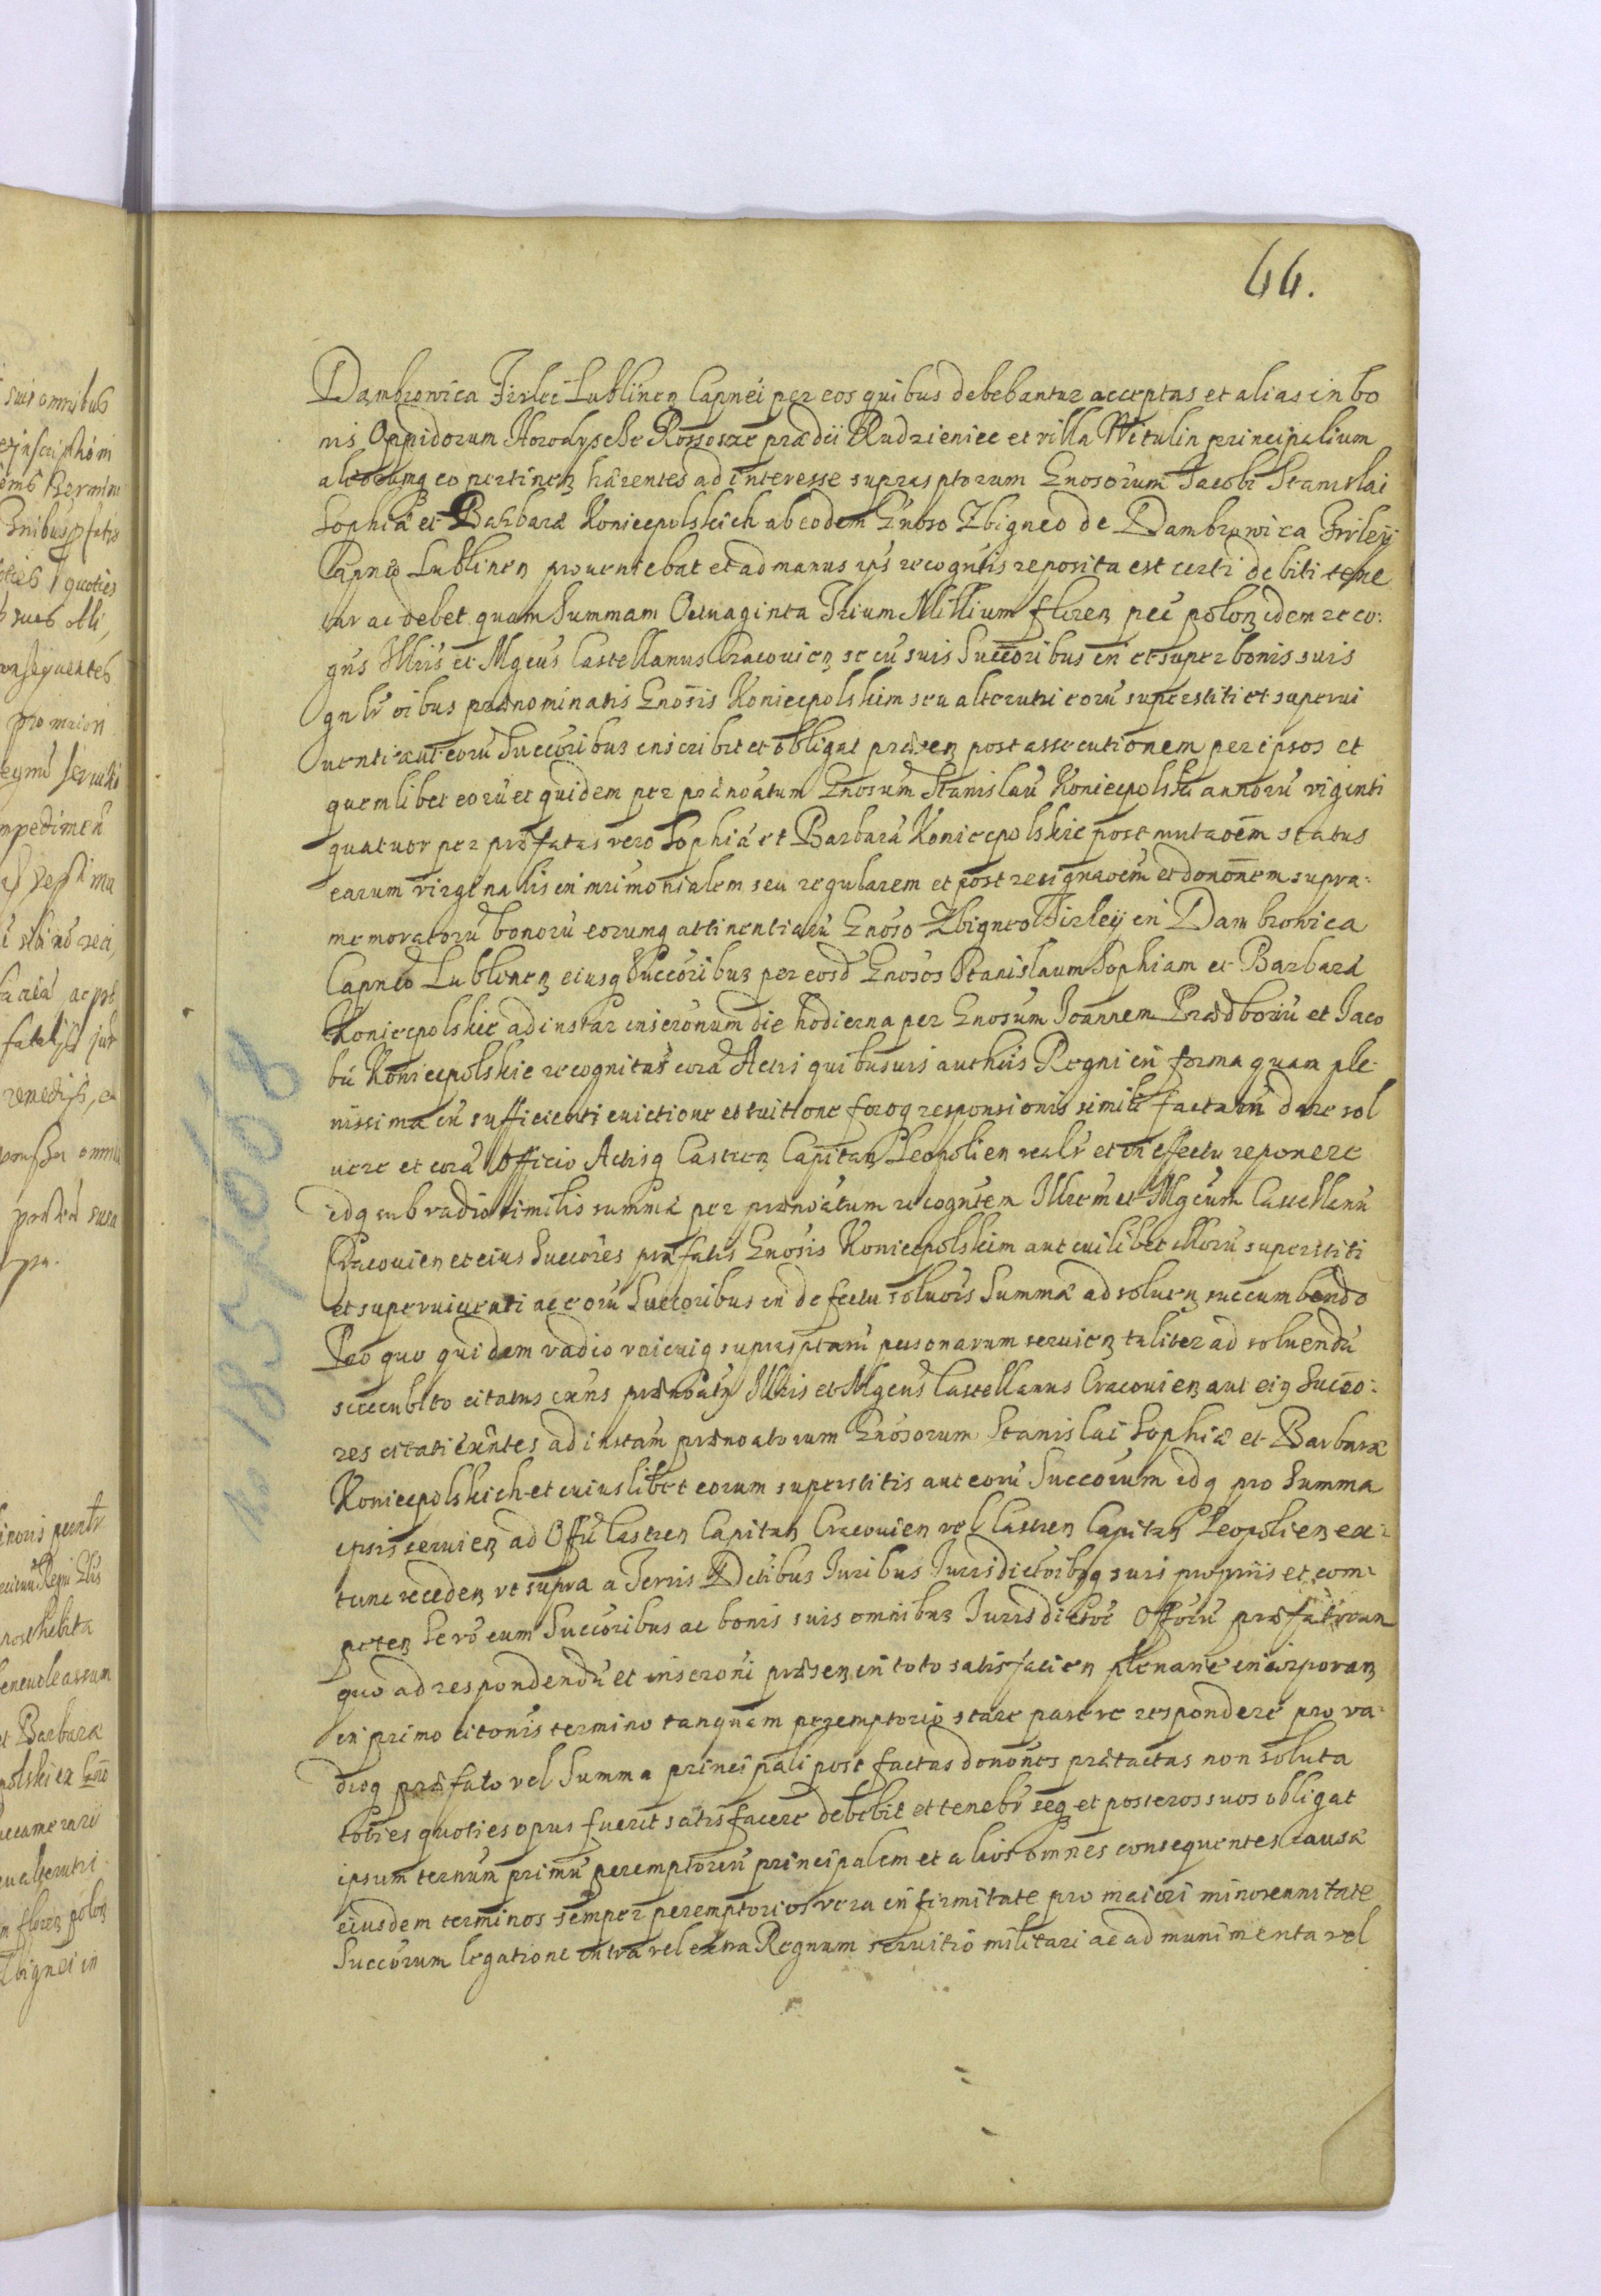 66.
Dambrowica Firlei Lublinen Capnei per eos quibus debebantur acceptas et alias in bo
nis Oppidorum Horodysche Rossosze prædii Rudzieniec et villa Witulin principalium
aliorumq eo pertinen hærentes ad interesse suprasptorum Gnosorum Jacobi Stanislai
Sophiæ et Barbaræ Koniecpolskich ab eodem Gnoso Zbigneo de Dambrowica Firleÿ
Capneo Lublinen proueniebat et ad manus ips recogntis reposita est certi debiti tene
tur ac debet quam Summam Octuaginta Trium Millium floren pec polon idem reco:
gns Illris et Mgcus Castellanus Cracouien se cu suis Succoribus in et super bonis suis
gnlr oibus prænominatis Gnosis Koniecpolskim seu alterutri eoru superstiti et superui
uenti aut eoru Succoribus inscribit et obligat præsen post assecutionem per ipsos et
quemlibet eoru et quidem per prænoatum Gnosum Stanislau Koniecpolski annoru viginti
quatuor per præfatas vero Sophia et Barbara Koniecpolskie post mutaoem status
earum virginalis in mrimonialem seu regularem et post resignaoem et dononem supra:
memoratoru bonoru eorumq attinentiaru Gnoso Zbigneo Firleÿ in Dambrowica
Capneo Lublinen eiusq Succoribus per eosd Gnosos Stanislaum Sophiam et Barbara
Koniecpolskie ad instar inscronum die hodierna per Gnosum Joannem Prædboriu et Jaco
bu Koniecpolskie recognitas cora Actis quibusuis authcis Regni in forma quam ple:
nissima cu sufficienti euictione et tuitione foroq responsionis simili factaru dare sol
uere et cora Officio Actisq Castren Capitan Leopolien realr et in effectu reponere
idq sub vadio similis summæ per prænoatum recogntem Illrem et Mgcum Castellanu
Cracouien et eius Succores præfatis Gnosis Koniecpolskim aut cuilibet illoru superstiti
et superuiuenti ac eoru Succoribus in defectu soluois Summæ ad soluen succumbendo
Pro quo quidem vadio vnicuiq supraspتaru personarum seruien taliter ad soluendu
succubito citatus exns prænoatus Illris et Mgcus Castellanus Cracouien aut eiq Succo:
res citati exntes ad instam prænoatorum Gnosorum Stanislai Sophiæ et Barbaræ
Koniecpolskich et cuiuslibet eorum superstitis aut eoru Succorum idq pro Summa
ipsis seruien ad Offu Castren Capitan Cracouien vel Castren Capitan Leopolien ex:
tunc receden vt supra a Terris Dctibus Juribus Jurisdictoibusq suis propriis et com:
peten Se vo cum Succoribus ac bonis suis omnibus Jurisdictoi Offoru præfatorum
quo ad respondendu et inscroni præsen in toto satisfacien plenarie incorporan
in primo citonis termino tanquam peremptorio stare parere respondere pro va:
dioq præfato vel Summa principali post factas donones prætactas non soluta
toties quoties opus fuerit satisfacere debebit et tenebr seq et posteros suos obligat
ipsum ternum primu peremptoriu principalem et alios omnes consequentes causæ
eiusdem terminos semper peremptorios vera infirmitate pro maiori minorennitate
Succorum legatione intra vel extra Regnum seruitio militari ac ad munimenta vel